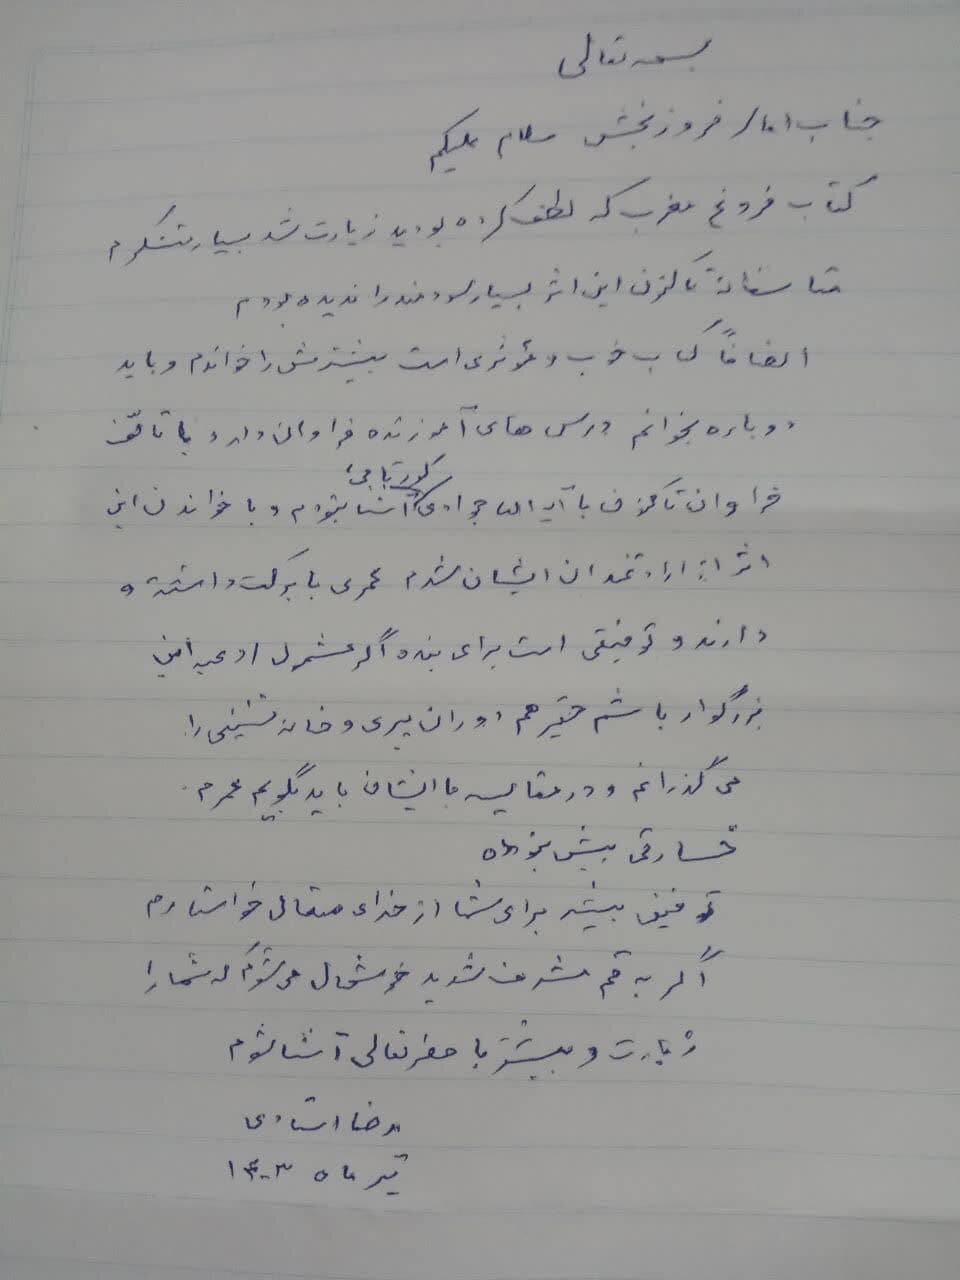 بسمه تعالی
جناب فروزبخش سلام علیکم
کتاب فروغ مغرب که لطف کرده بودید زیارت شد بسیار متشکرم
متاسفانه تاکنون این اثر بسیار سودمند را ندیده بودم
انصافاً کتاب خوب و مؤثری است بیشترش را خواندم و باید
دوباره بخوانم درس های آموزنده فراوان دارد با تأسف
فراوان تاکنون با آیة الله جوادی آشنا نبودم و با خواندن این
اثر از ارادتمندان ایشان شدم عمری با برکت داشته و
دارند و توفیقی است برای بنده اگر مشمول ادعیه این
بزرگوار باشم حقیر هم دوران پیری و خانه نشینی را
می گذرانم و در مقایسه با ایشان باید بگویم عمرم
خسارتی بیش نبوده
توفیق بیشتر برای شما از خدای متعال خواستارم
اگر به قم مشرف شدید خوشحال می شوم که شما را
زیارت و بیشتر با حضرتعالی آشنا شوم
رضا استادی
تیر ماه ۱۴۰۳